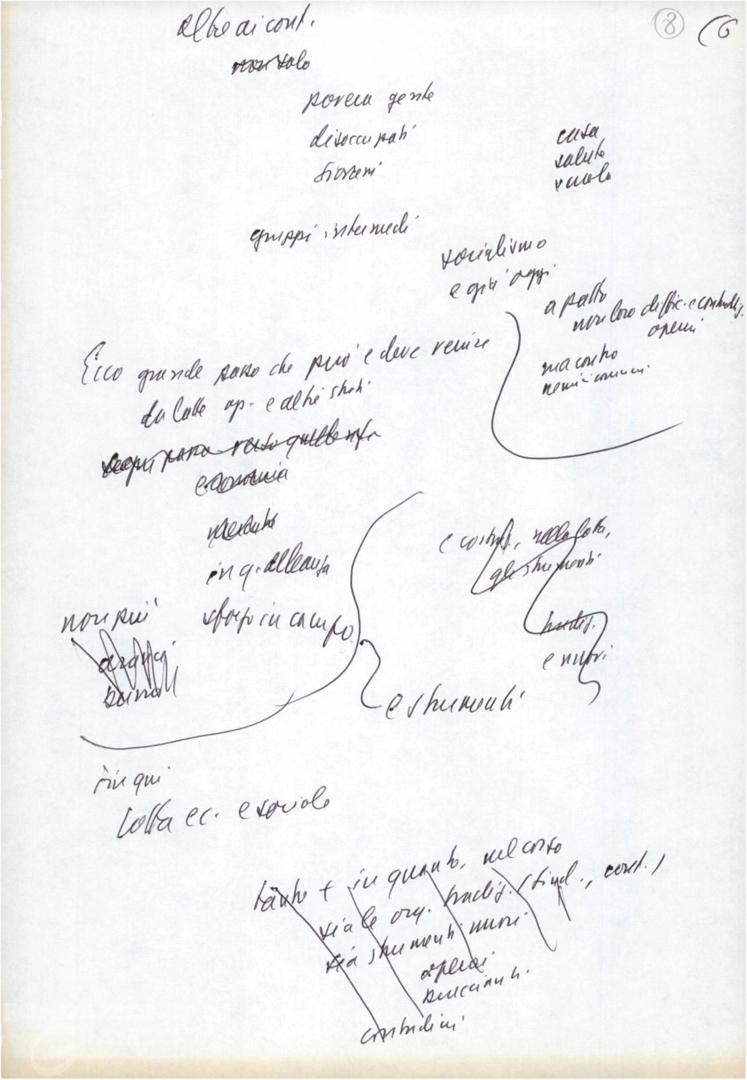 8 6
altre di cont.
non solo
povera gente
disoccupati
giovani
casa
salute
scuola
gruppi intermedi
socialismo
e già oggi
a patto
non loro diffic. e contradd.
operai
ma contro
nemici comuni
Ecco grande passo che può e deve venire
da lotte op. e altri strati
economia
in q. alleanza
non più
sforzo in campo
e costruz., nella lotta,
gli strumenti
tradiz.
e nuovi
e strumenti
fin qui
lotta ec. e sociale
tanto + in quanto, nel corso
sia le org. tradiz. (sind., cont.)
sia strumenti nuovi
operai
braccianti
contadini